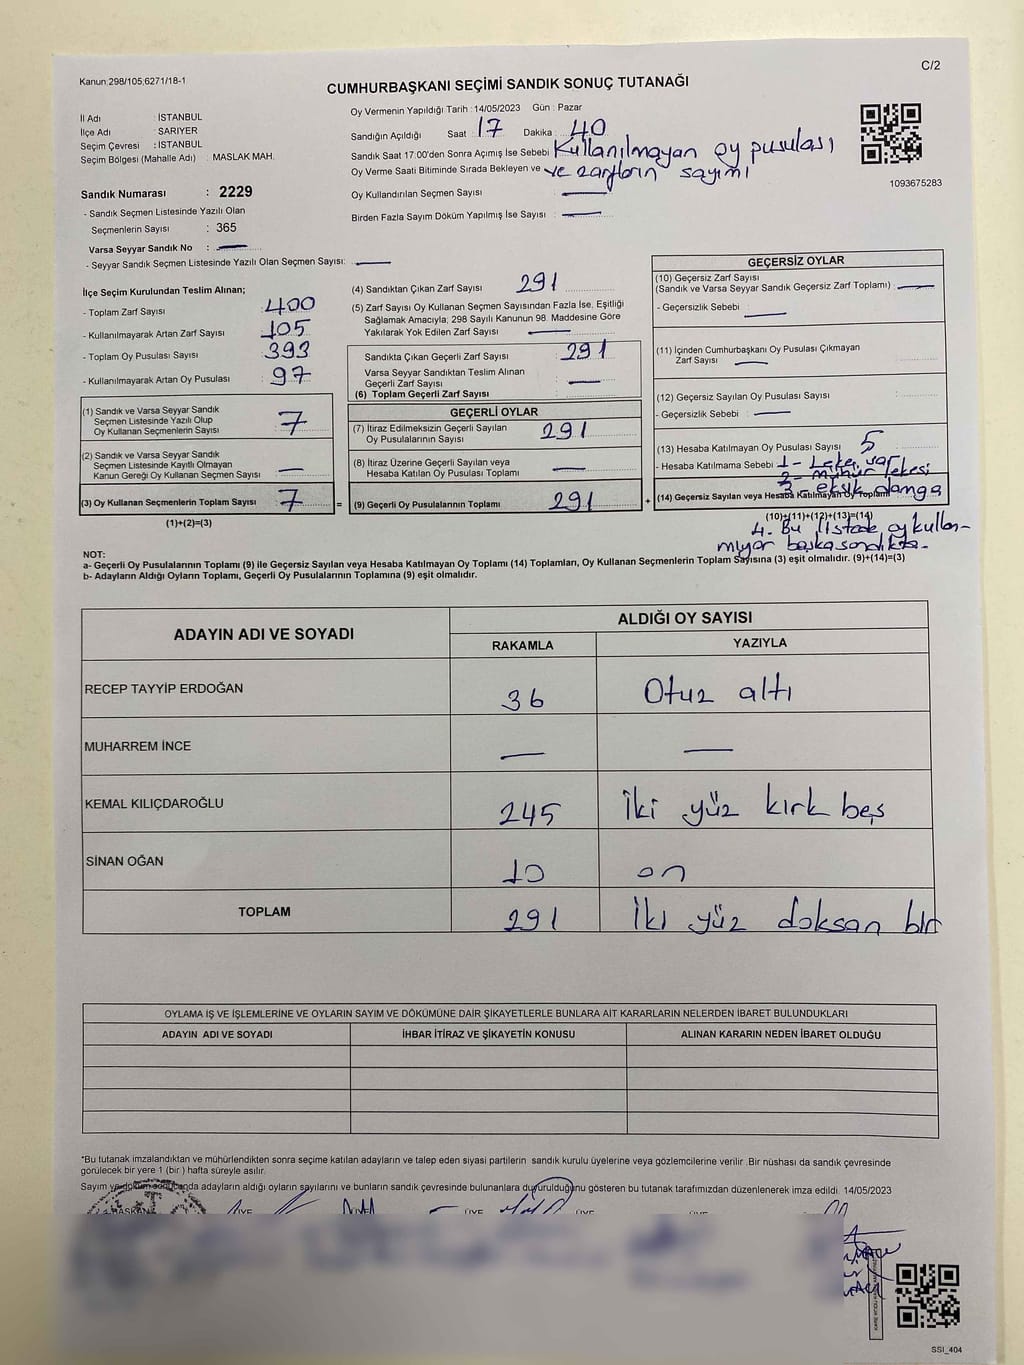 C/2
Kanun 298/105,6271/18-1
CUMHURBAŞKANI SEÇİMİ SANDIK SONUÇ TUTANAĞI
İl Adı : İSTANBUL
İlçe Adı : SARIYER
Seçim Çevresi : İSTANBUL
Seçim Bölgesi (Mahalle Adı) : MASLAK MAH.
Oy Vermenin Yapıldığı Tarih : 14/05/2023 Gün : Pazar
Sandığın Açıldığı Saat 17 Dakika : 40
Sandık Saat 17:00'den Sonra Açımış İse Sebebi Kullanılmayan oy pusulası
Oy Verme Saati Bitiminde Sırada Bekleyen ve ve zarfların sayımı
Oy Kullandırılan Seçmen Sayısı : —
Birden Fazla Sayım Döküm Yapılmış İse Sayısı : —
1093675283
Sandık Numarası : 2229
- Sandık Seçmen Listesinde Yazılı Olan
Seçmenlerin Sayısı : 365
Varsa Seyyar Sandık No : —
- Seyyar Sandık Seçmen Listesinde Yazılı Olan Seçmen Sayısı: —
İlçe Seçim Kurulundan Teslim Alınan;
- Toplam Zarf Sayısı : 400
- Kullanılmayarak Artan Zarf Sayısı : 105
- Toplam Oy Pusulası Sayısı : 393
- Kullanılmayarak Artan Oy Pusulası : 97
(1) Sandık ve Varsa Seyyar Sandık
Seçmen Listesinde Yazılı Olup
Oy Kullanan Seçmenlerin Sayısı : 7
(2) Sandık ve Varsa Seyyar Sandık
Seçmen Listesinde Kayıtlı Olmayan
Kanun Gereği Oy Kullanan Seçmen Sayısı : —
(3) Oy Kullanan Seçmenlerin Toplam Sayısı : 7 =
(1)+(2)=(3)
(4) Sandıktan Çıkan Zarf Sayısı : 291
(5) Zarf Sayısı Oy Kullanan Seçmen Sayısından Fazla İse, Eşitliği
Sağlamak Amacıyla; 298 Sayılı Kanunun 98. Maddesine Göre
Yakılarak Yok Edilen Zarf Sayısı : —
Sandıkta Çıkan Geçerli Zarf Sayısı : 291
Varsa Seyyar Sandıktan Teslim Alınan
Geçerli Zarf Sayısı : —
(6) Toplam Geçerli Zarf Sayısı :
GEÇERLİ OYLAR
(7) İtiraz Edilmeksizin Geçerli Sayılan
Oy Pusulalarının Sayısı : 291
(8) İtiraz Üzerine Geçerli Sayılan veya
Hesaba Katılan Oy Pusulası Toplamı : —
(9) Geçerli Oy Pusulalarının Toplamı : 291 +
GEÇERSİZ OYLAR
(10) Geçersiz Zarf Sayısı
(Sandık ve Varsa Seyyar Sandık Geçersiz Zarf Toplamı) : —
- Geçersizlik Sebebi : —
(11) İçinden Cumhurbaşkanı Oy Pusulası Çıkmayan
Zarf Sayısı —
(12) Geçersiz Sayılan Oy Pusulası Sayısı :
- Geçersizlik Sebebi : —
(13) Hesaba Katılmayan Oy Pusulası Sayısı : 5
- Hesaba Katılmama Sebebi : 1- Leke var
2- mühür lekesi
3- eksik damga
(14) Geçersiz Sayılan veya Hesaba Katılmayan Oy Toplamı
(10)+(11)+(12)+(13)=(14)
4. Bu listede oy kullan-
mıyor başka sandıkta-
NOT:
a- Geçerli Oy Pusulalarının Toplamı (9) ile Geçersiz Sayılan veya Hesaba Katılmayan Oy Toplamı (14) Toplamları, Oy Kullanan Seçmenlerin Toplam Sayısına (3) eşit olmalıdır. (9)+(14)=(3)
b- Adayların Aldığı Oyların Toplamı, Geçerli Oy Pusulalarının Toplamına (9) eşit olmalıdır.
ADAYIN ADI VE SOYADI
ALDIĞI OY SAYISI
RAKAMLA YAZIYLA
RECEP TAYYİP ERDOĞAN 36 Otuz altı
MUHARREM İNCE — —
KEMAL KILIÇDAROĞLU 245 İki yüz kırk beş
SİNAN OĞAN 10 on
TOPLAM 291 İki yüz doksan bir
OYLAMA İŞ VE İŞLEMLERİNE VE OYLARIN SAYIM VE DÖKÜMÜNE DAİR ŞİKAYETLERLE BUNLARA AİT KARARLARIN NELERDEN İBARET BULUNDUKLARI
ADAYIN ADI VE SOYADI İHBAR İTİRAZ VE ŞİKAYETİN KONUSU ALINAN KARARIN NEDEN İBARET OLDUĞU
*Bu tutanak imzalandıktan ve mühürlendikten sonra seçime katılan adayların ve talep eden siyasi partilerin sandık kurulu üyelerine veya gözlemcilerine verilir .Bir nüshası da sandık çevresinde
görülecek bir yere 1 (bir ) hafta süreyle asılır.
Sayım ve döküm sonucunda adayların aldığı oyların sayılarını ve bunların sandık çevresinde bulunanlara duyurulduğunu gösteren bu tutanak tarafımızdan düzenlenerek imza edildi. 14/05/2023
BAŞKAN ÜYE ÜYE ÜYE ÜYE ÜYE
SSI_404